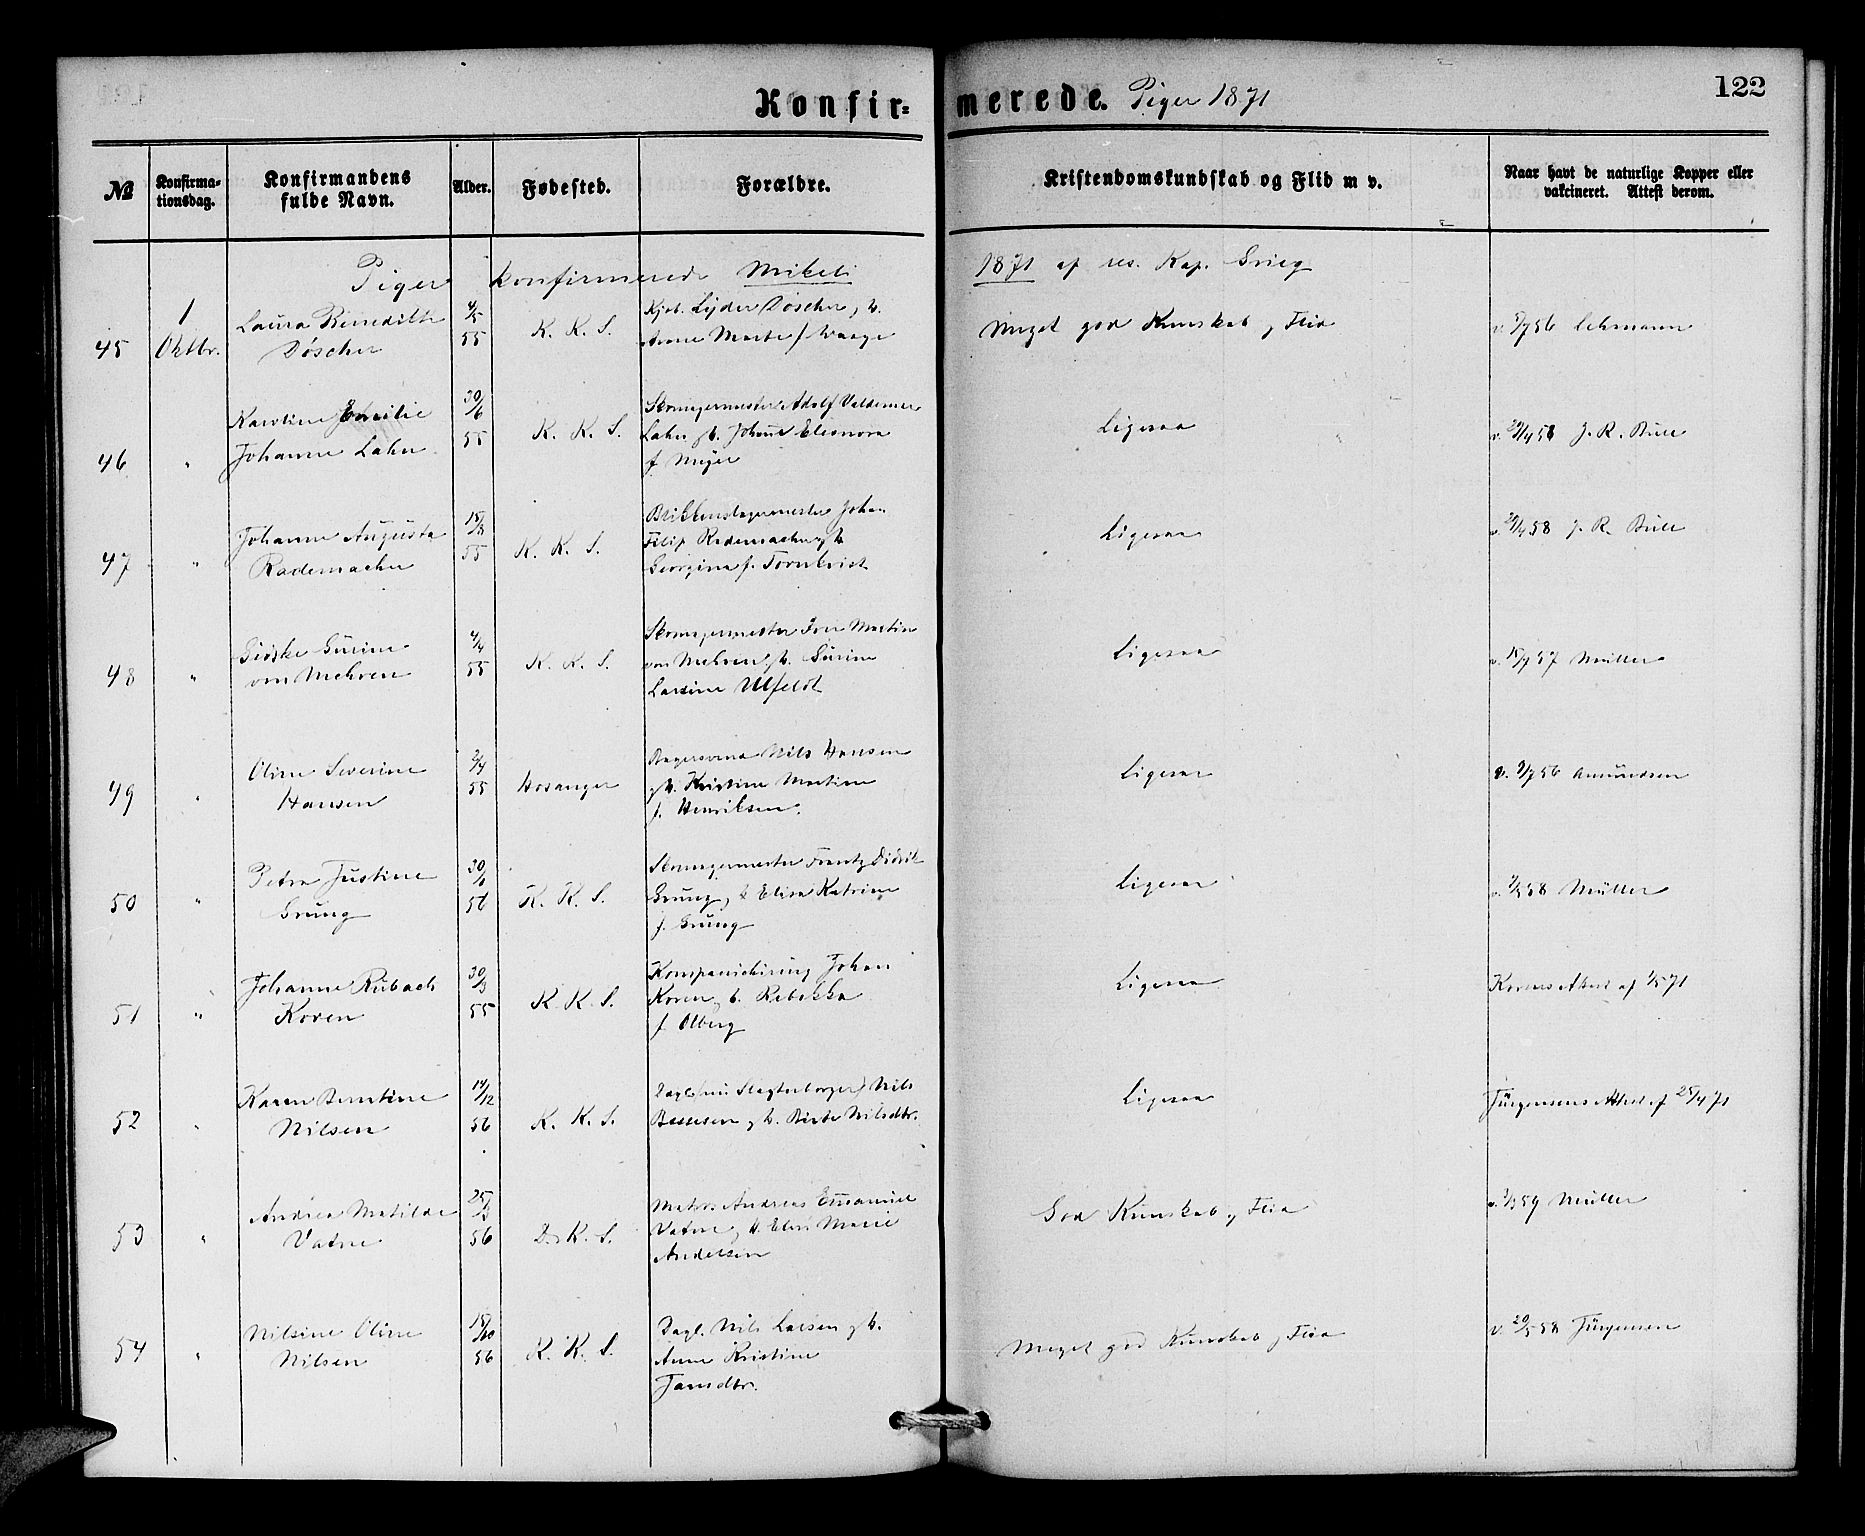 122
Konfir= merede. Piger 1871
№
Konfirma=
tionsdag.
Konfirmandens
fulde Navn.
Alder.
Fødested.
Forældre.
Kristendomskundskab og Flid m v.
Naar havt de naturlige Kopper eller
vakcineret. Attest derom.
Piger konfirmerede Mikeli 1871 af res. Kap. Grieg
45
1
Oktbr.
Laura Benedikte
Döscher
4/5
55
K. K. S.
Lyder Döscher, h.
Anne Marte f Waage
Meget god Kunskab og Flid
v. 56 Lehmann
46
"
Karoline Emilie
Johanne Lahn
30/6
55
K. K. S.
Skomagermester Adolf Valdemar
Lahn, h. Johanne Eleonora
f Meyer
Ligesaa
v. 29/4 58 J. R. Bull
47
"
Johanne Augusta
Rademacher
15/8
55
K. K. S.
Blikkenslagermester Johan
Filip Rademacher, h
Georgina f. Tornkvist
Ligesaa
v. 29/4 58 J. R. Bull
48
"
Gidske Gurine
von Mehren
4/4
55
K. K. S.
Skomagermester Iver Martin
von Mehren, h. Gurine
Larsine Ulfeldt
Ligesaa
v. 15/9 57 Müller
49
"
Oline Severine
Hansen
2/4
55
Hosanger
Bagersvend Nils Hansen
, h. Kristine Martine
f. Henriksen.
Ligesaa
v. 56 Amundsen
50
"
Petra Justine
Grung
30/6
56
K. K. S.
Skomagermester Frantz Didrik
Grung, h Elisa Katrine
f. Grung
Ligesaa
v. 58 Müller
51
"
Johanne Rubach
Koren
30/3
55
K. K. S.
Kompanichirurg Johan
Koren, h. Rebekka
f Olberg
Ligesaa
Korens Attest af 1/5 71
52
"
Karen Berntine
Nilsen
14/12
56
K. K. S.
Dagl. (nu Slagterborger) Nils
, h. Birte Nilsdtr.
Ligesaa
Jürgensens Attest af 25/4 71
53
"
Andrea Matilde
Vatne
25/3
56
D. K. S.
Matros Andreas Emanuel
Vatne, h. Elen Marie
Andersen
God Kunskab og Flid
v. 59 Müller
54
"
Nilsine Oline
Nilsen
15/10
56
K. K. S.
Dagl. Nils Larsen, h.
Anne Kristine
Jansdtr.
Meget god Kunskab og Flid
v. 20/5 58 Jürgensen